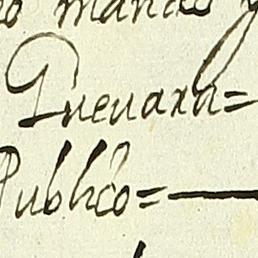 mando y
Gueuara=
Publico=